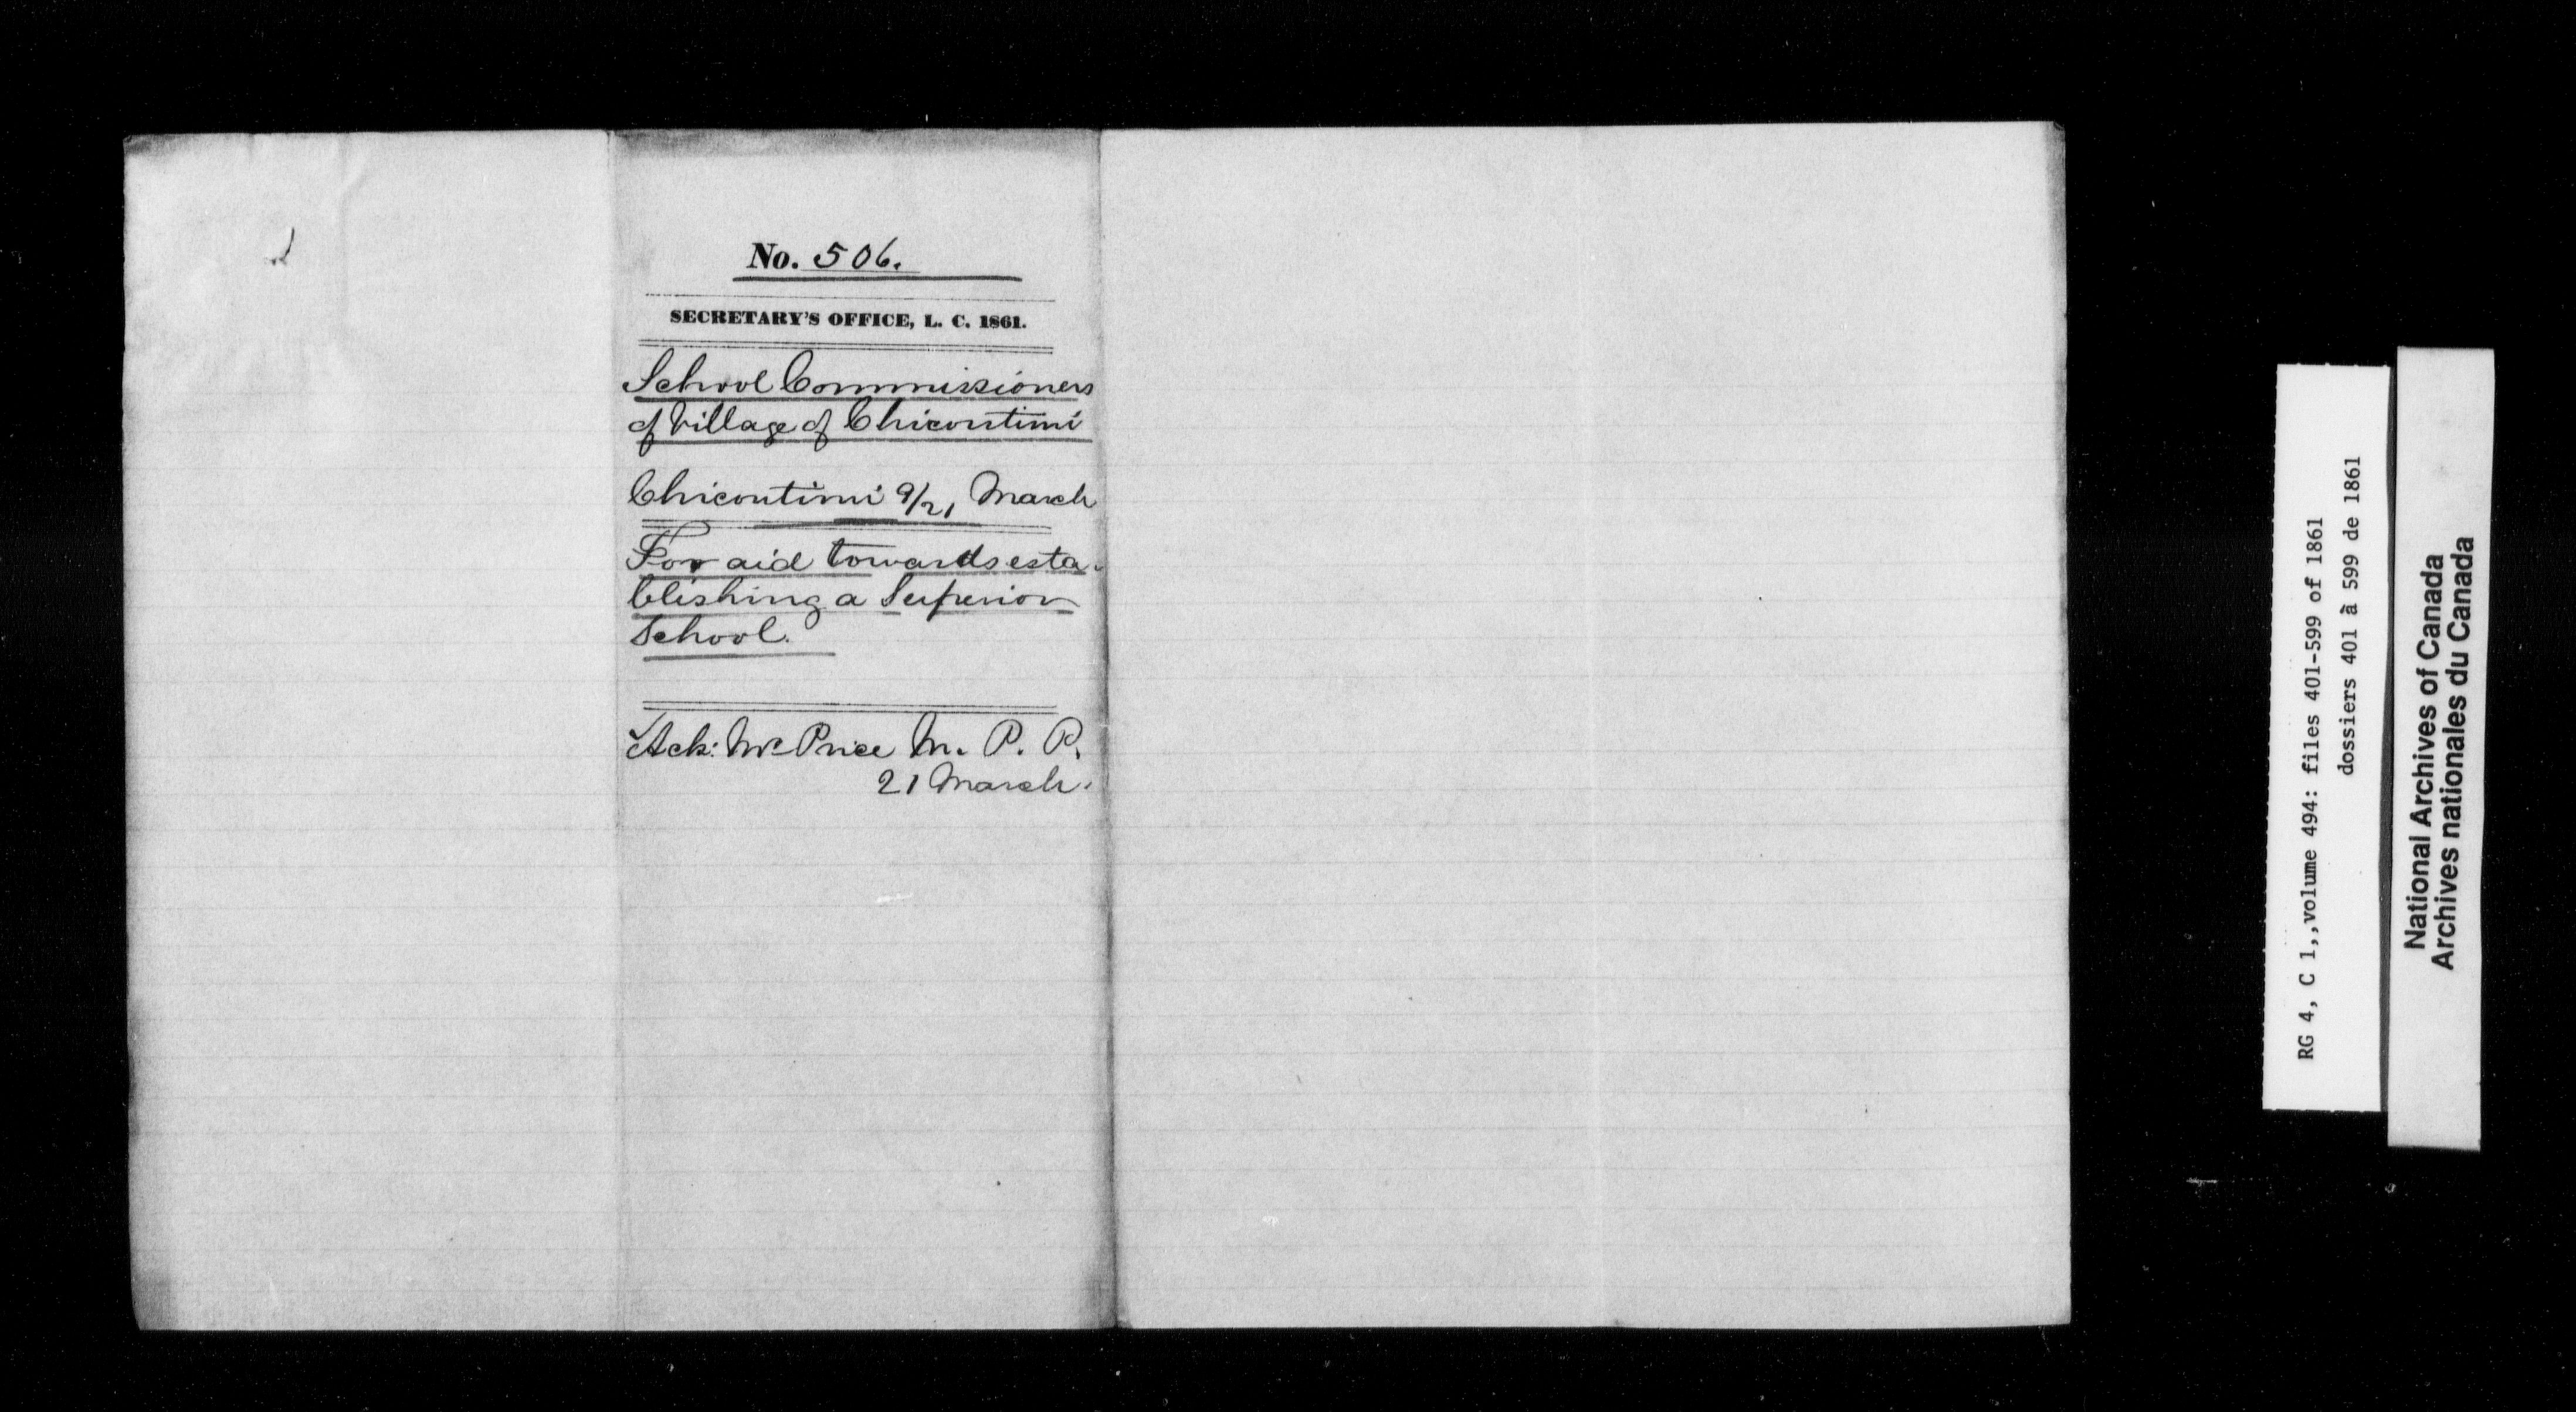 No. 506.
SECRETARY'S OFFICE, L. C. 1861.
School Commissioners
of Village of Chicoutimi
Chicoutimi 9/21 March
For aid towards esta-
blishing a Superior
School.
Ack: Mr Price M. P. P.
21 March.
RG 4, C 1,,volume 494: files 401-599 of 1861
dossiers 401 à 599 de 1861
National Archives of Canada
Archives nationales du Canada